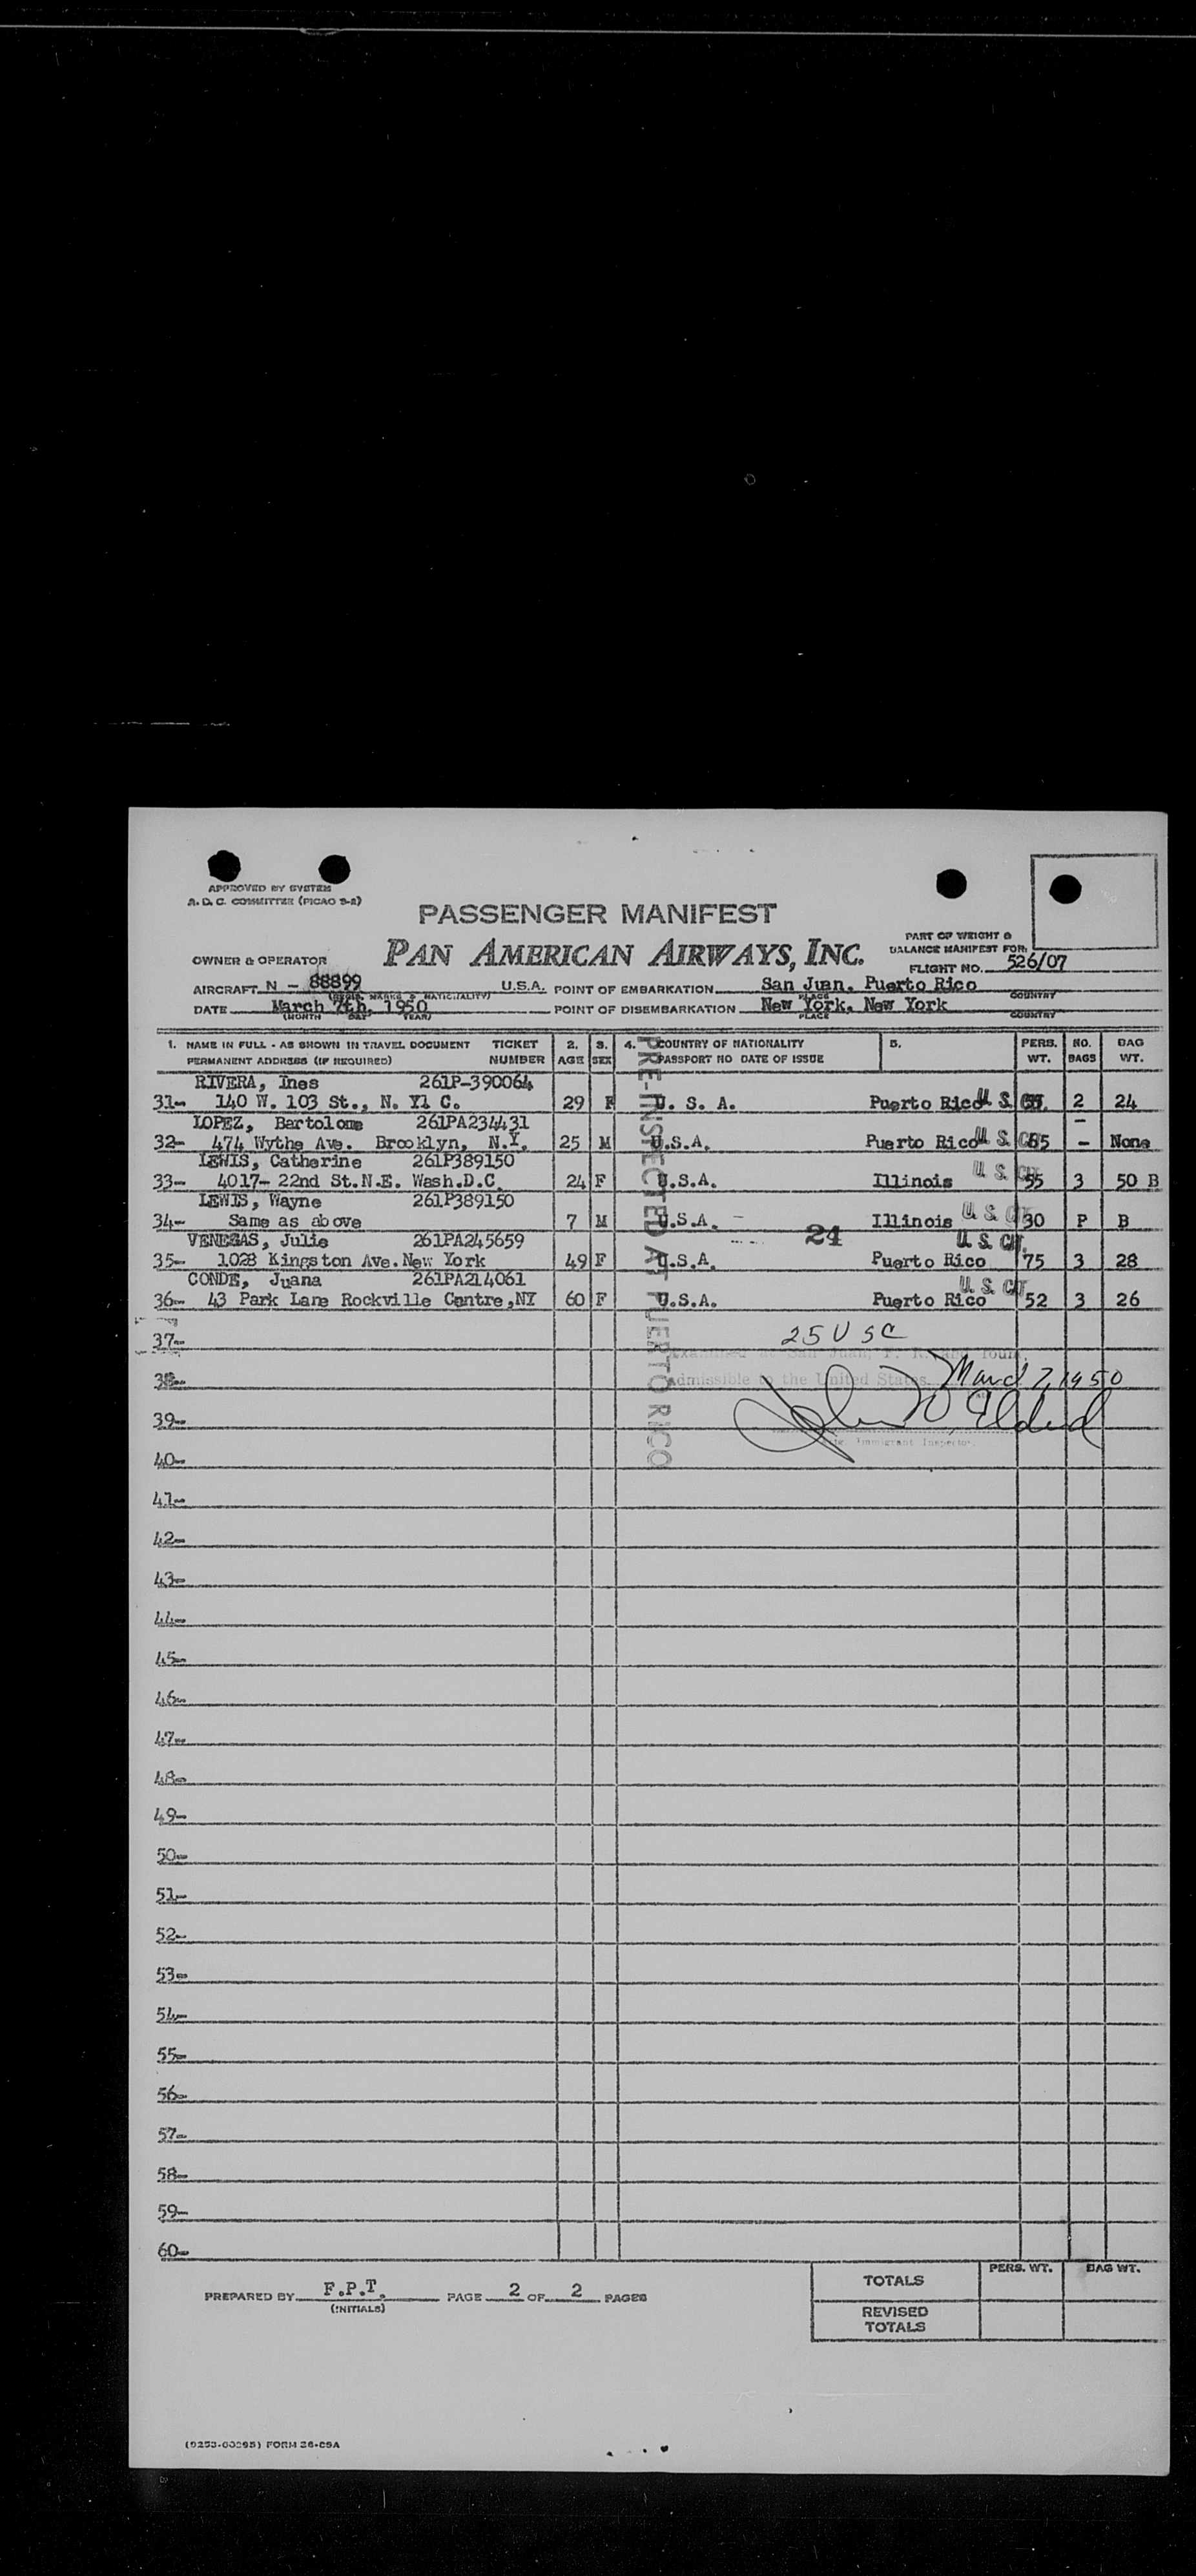 APPROVED BY SYSTEM
A. D. C. COMMITTEE (PICAO 9-2)
PASSENGER MANIFEST
PART OF WEIGHT &
BALANCE MANIFEST FOR:
OWNER & OPERATOR PAN AMERICAN AIRWAYS, INC.
FLIGHT NO. 526/07
AIRCRAFT N - 88899 U.S.A. POINT OF EMBARKATION San Juan, Puerto Rico
(REGIS. MARKS & NATIONALITY) PLACE COUNTRY
DATE March 7th, 1950 POINT OF DISEMBARKATION New York, New York
(MONTH DAY YEAR) PLACE COUNTRY
1. NAME IN FULL - AS SHOWN IN TRAVEL DOCUMENT TICKET 2. 3. 4. COUNTRY OF NATIONALITY 5. PERS. NO. BAG
PERMANENT ADDRESS (IF REQUIRED) NUMBER AGE SEX PASSPORT NO DATE OF ISSUE WT. BAGS WT.
PRE-INSPECTED AT PUERTO RICO
RIVERA, Ines 261P-390064
31- 140 W. 103 St., N. Yl C. 29 F U. S. A. Puerto Rico U. S. 2 24
LOPEZ, Bartolome 261PA234431 -
32- 474 Wythe Ave. Brooklyn, N.Y. 25 M U.S.A. Puerto Rico U. S. 65 - None
LEWIS, Catherine 261P389150
33- 4017- 22nd St.N.E. Wash.D.C. 24 F U.S.A. Illinois U. S. CIT. 55 3 50 B
LEWIS, Wayne 261P389150
34- Same as above 7 M U.S.A. - Illinois U. S. CIT. 30 P B
24
VENEGAS, Julie 261PA245659 U. S. CIT.
35- 1028 Kingston Ave.New York 49 F U.S.A. Puerto Rico 75 3 28
CONDE, Juana 261PA214061 U. S. CIT.
36- 43 Park Lane Rockville Centre,NY 60 F U.S.A. Puerto Rico 52 3 26
37- 25 U S C
Examined at San Juan, P. R. and found
38- Admissible to the United States March 7, 1950
39-
Immigrant Inspector.
40-
41-
42-
43-
44-
45-
46-
47-
48-
49-
50-
51-
52-
53-
54-
55-
56-
57-
58-
59-
60-
PERS. WT. BAG WT.
TOTALS
PREPARED BY F.P.T. PAGE 2 OF 2 PAGES
(INITIALS)
REVISED
TOTALS
FORM 26-